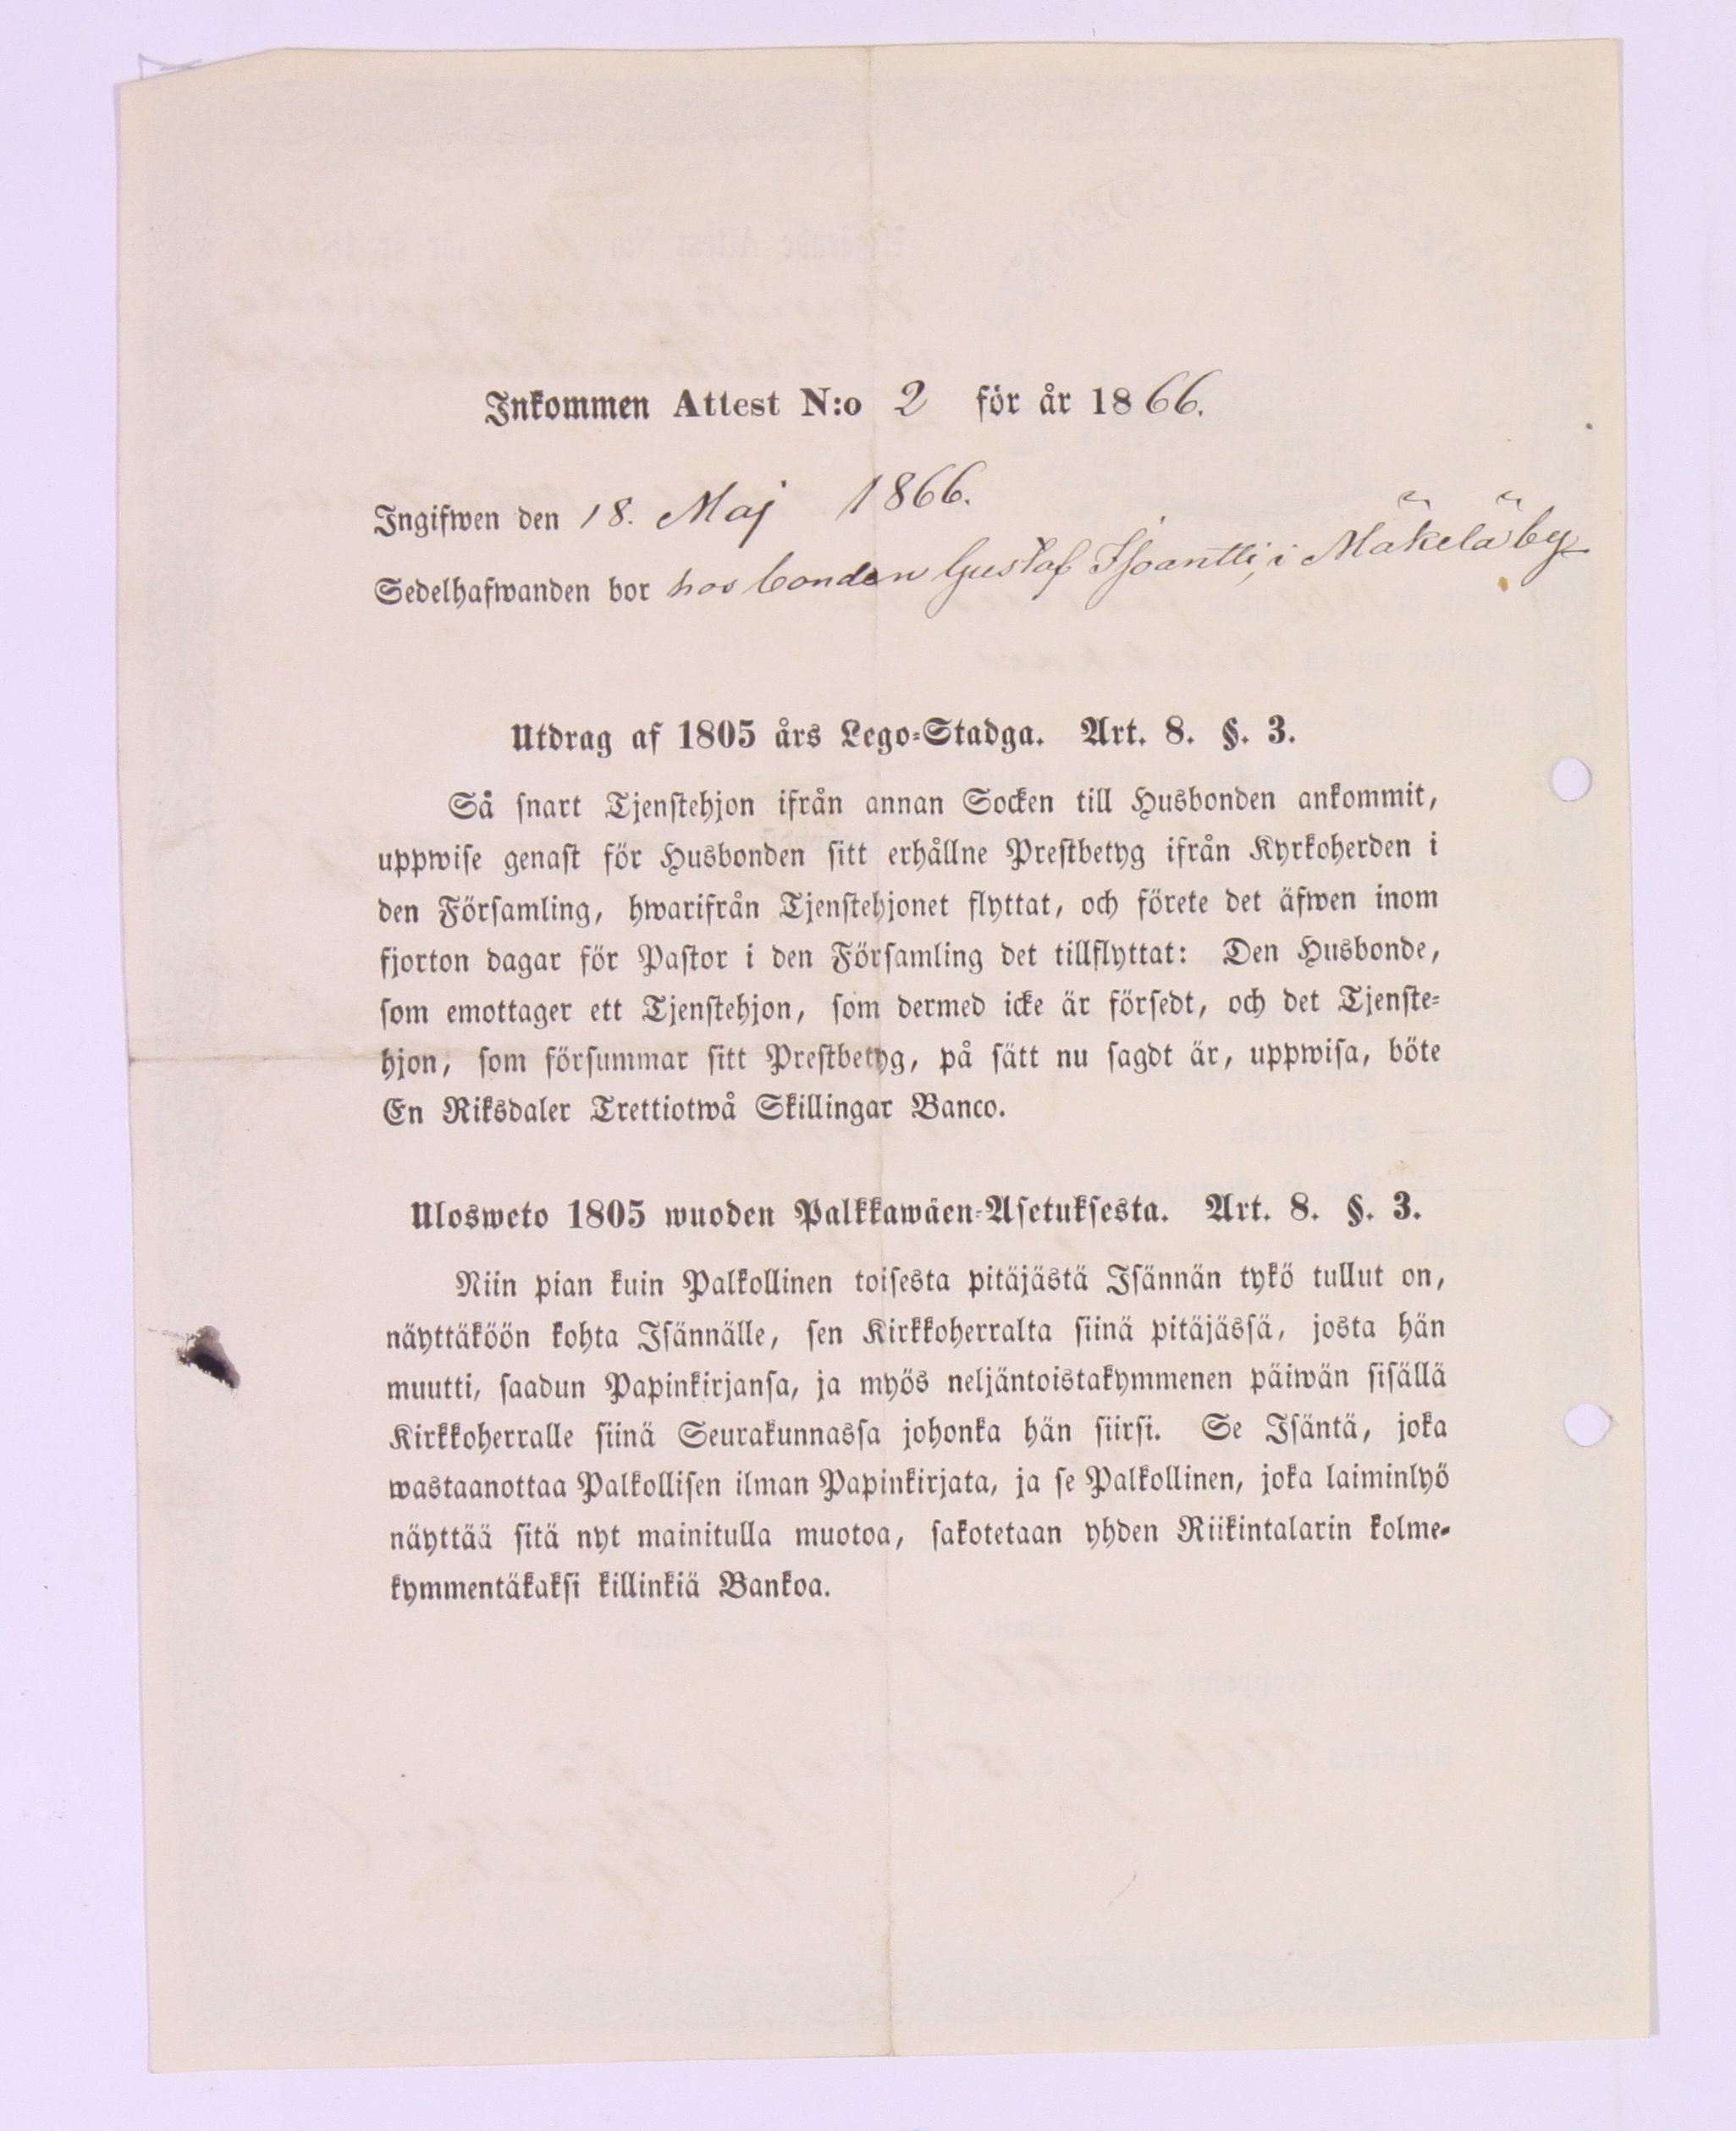 Inkommen Attest N:o 2 för år 1866.
Ingifwen den 18. Maj 1866.
Sedelhafwanden bor hos bonden Gustaf Isoantti, i Mäkelä by
Utdrag af 1805 års Lego-Stadga. Art. 8. §. 3.
Så snart Tjenstehjon ifrån annan Socken till Husbonden ankommit,
uppwise genast för Husbonden sitt erhållne Prestbetyg ifrån Kyrkoherden i
den Församling, hwarifrån Tjenstehjonet flyttat, och förete det äfwen inom
fjorton dagar för Pastor i den Församling det tillflyttat: Den Husbonde,
som emottager ett Tjenstehjon, som dermed icke är försedt, och det Tjenste-
hjon, som försummar sitt Prestbetyg, på sätt nu sagdt är, uppwisa, böte
En Riksdaler Trettiotwå Skillingar Banco.
Ulosweto 1805 wuoden Palkkawäen-Asetuksesta. Art. 8. §. 3.
Niin pian kuin Palkollinen toisesta pitäjästä Isännän tykö tullut on,
näyttäköön kohta Isännälle, sen Kirkkoherralta siinä pitäjässä, josta hän
muutti, saadun Papinkirjansa, ja myös neljäntoistakymmenen päiwän sisällä
Kirkkoherralle siinä Seurakunnassa johonka hän siirsi. Se Isäntä, joka
wastaanottaa Palkollisen ilman Papinkirjata, ja se Palkollinen, joka laiminlyö
näyttää sitä nyt mainitulla muotoa, sakotetaan yhden Riikintalarin kolme-
kymmentäkaksi killinkiä Bankoa.